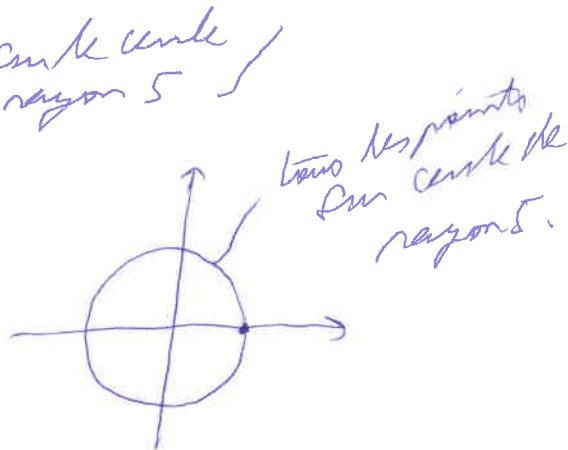 sur le cercle
rayon 5
tous les points
sur cercle de
rayon 5.